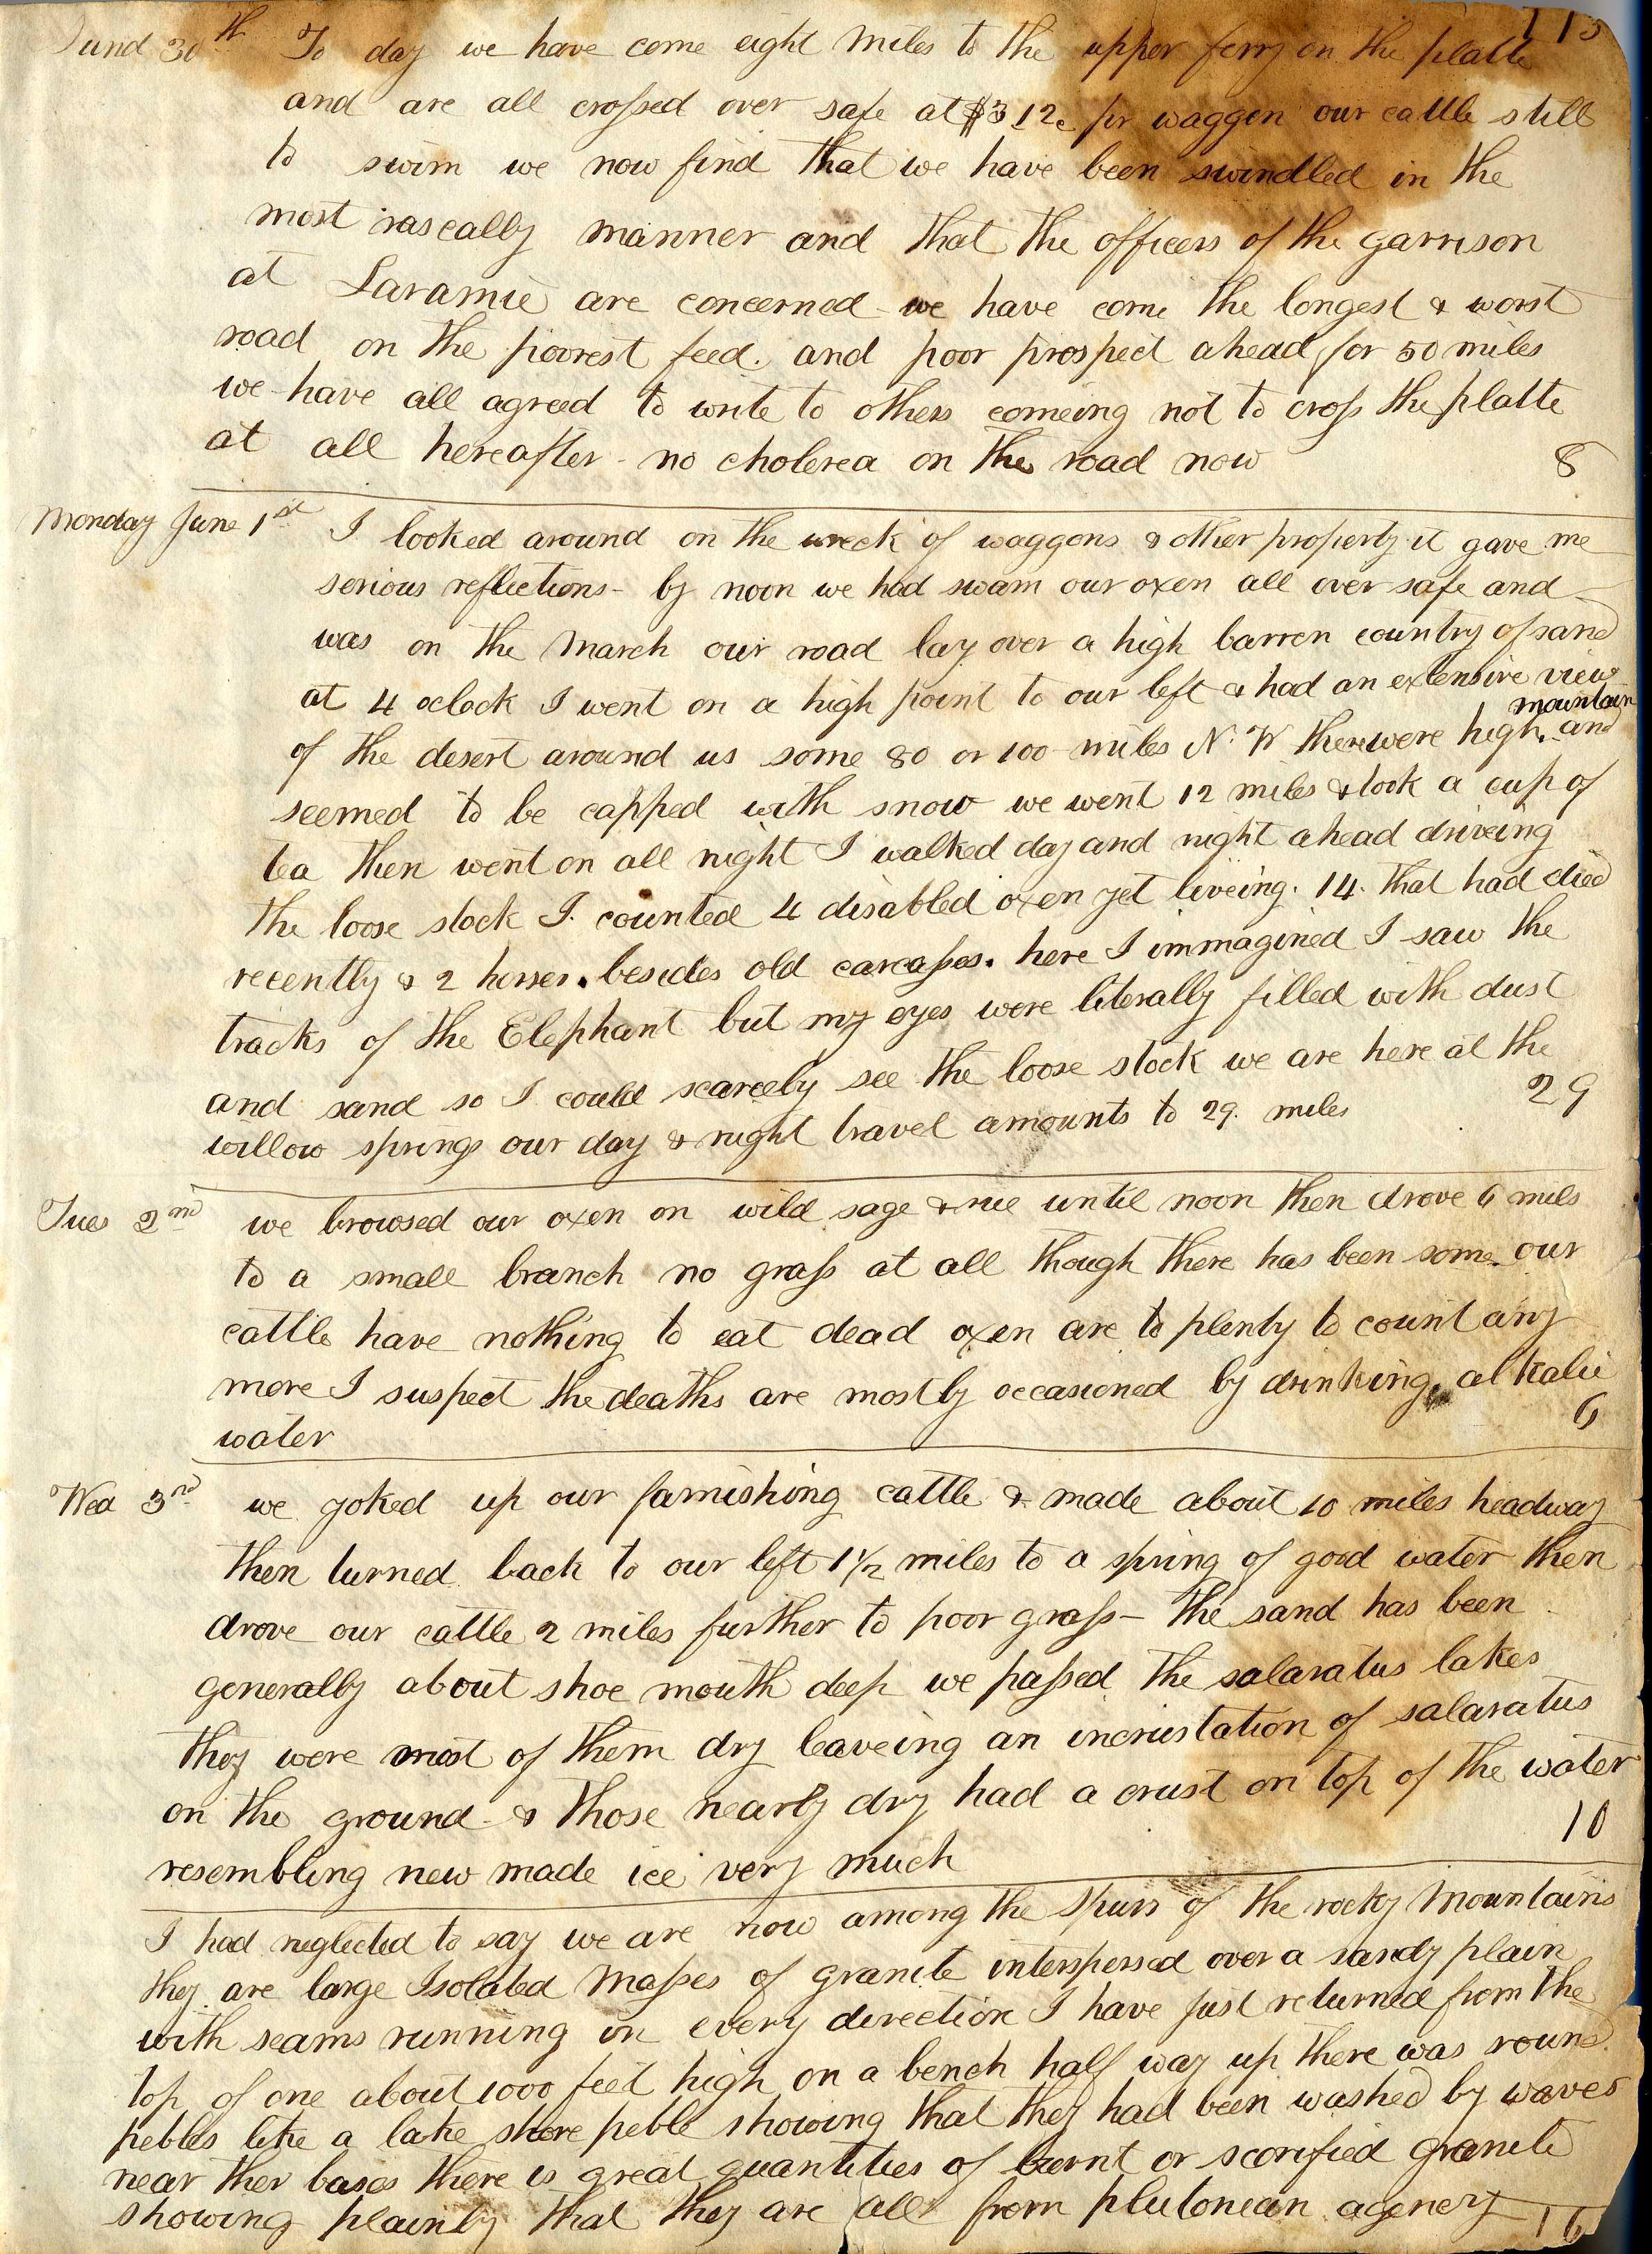 115
Sund 30th To day we have come eight miles to the upper ferry on the platte
and are all crossed over safe at $3 12c pr waggon our cattle still
to swim we now find that we have been swindled in the
most rascally manner and that the officers of the garrison
at Laramie are concerned - we have come the longest & worst
road on the poorest feed. and poor prospect ahead for 50 miles
we have all agreed to write to others comeing not to cross the platte
at all hereafter - no cholerea on the road now 8
Monday June 1st I looked around on the wreck of waggons & other property it gave me
serious reflections - by noon we had swam our oxen all over safe and
was on the march our road lay over a high barren country of sand
at 4 oclock I went on a high point to our left & had an extensive view
mountain
of the desert around us some 80 or 100 miles N. W there were high and
seemed to be capped with snow we went 12 miles & took a cup of
tea then went on all night I walked day and night ahead driveing
the loose stock I counted 4 disabled oxen yet liveing. 14. that had died
recently & 2 horses. besides old carcasses. here I immagined I saw the
tracks of the Elephant but my eyes were literally filled with dust
and sand so I could scarcely see the loose stock we are here at the
willow springs our day & night travel amounts to 29. miles 29
Tues 2nd we browsed our oxen on wild sage & rue until noon then drove 6 mils
to a small branch no grass at all though there has been some. our
cattle have nothing to eat dead oxen are to plenty to count any
more I suspect the deaths are mostly occasioned by drinking alkalie
water 6
Wed 3rd we yoked up our famishing cattle & made about 10 miles headway
then turned back to our left 1 1/2 miles to a spring of good water then
drove our cattle 2 miles further to poor grass - the sand has been
generally about shoe mouth deep we passed the salaratus lakes
they were most of them dry leaveing an incrustation of salaratus
on the ground - & those nearly dry had a crust on top of the water
resembling new made ice very much 10
I had neglected to say we are now among the spurs of the rocky mountains
they are large Isolated masses of granite interspersed over a sandy plain
with seams running in every direction I have just returned from the
top of one about 1000 feet high on a bench half way up there was round
pebles like a lake shore peble showing that they had been washed by waves
near ther bases there is great quantities of burnt or scorified granite
showing plainly that they are all from plutonean agency 16